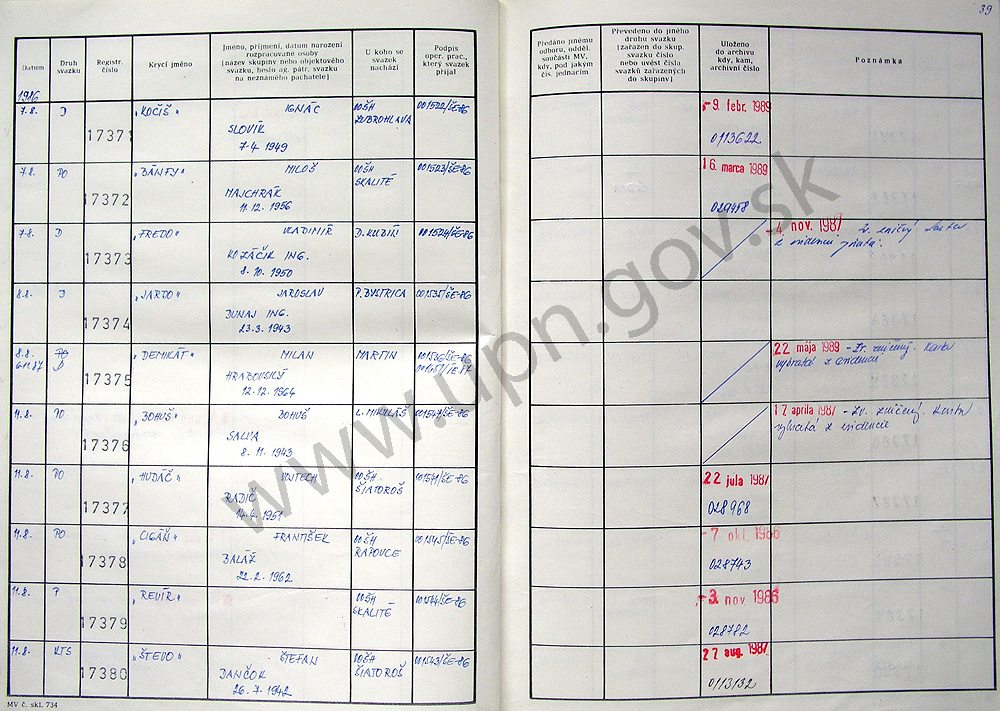 39
Datum
Druh svazku
Registr. číslo
Krycí jméno
Jméno, příjmení, datum narození
rozpracované osoby
[název skupiny nebo objektového
svazku, heslo ag. pátr. svazku
na neznámého pachatele]
U koho se
svazek
nachází
Podpis
oper. prac.,
který svazek
přijal
Předáno jinému
odboru, odděl.
součásti MV,
kdy, pod jakým
čís. jednacím
Převedeno do jiného
druhu svazku
[zařazen do skup.
svazku číslo
nebo uvést čísla
svazků zařazených
do skupiny]
Uloženo
do archivu
kdy, kam,
archivní číslo
Poznámka
1986
7.8. D 17371 "KOČIŠ" IGNÁC
SLOVÍK
7.4. 1949
OOŠH
ZUBROHLAVA
001522/ŠE-86
-9. febr. 1989
0113622
7.8. PO 17372 "BÁNFY" MILOŠ
MAJCHRÁK
11.12. 1956
OOŠH
SKALITÉ
001523/ŠE-86
16. marca 1989
029458
7.8. D 17373 "FREDO" VLADIMÍR
KOZÁČIK ING.
8.10. 1950
D. KUBÍN
001524/ŠE-86
-4. nov. 1987 Zv. zničený karta
z evidencie
8.8. D 17374 "JARDO" JAROSLAV
DUNAJ ING.
23.3. 1943
P. BYSTRICA
001535/ŠE-86
8.8. PO 17375 "DEMIKÁT" MILAN
6.11.87 D
HRABOVSKÝ
12.12. 1964
MARTIN
22 mája 1989 - Zv. zničený. Karta
vybratá z evidencie
11.8. PO 17376 "BOHUŠ" BOHUŠ
SALVA
8.11. 1943
L. MIKULÁŠ
001547/ŠE-86
17 apríla 1987 - Zv. zničený. Karta
vybratá z evidencie
11.8. PO 17377 "HUDÁČ" VOJTECH
RADIČ
14.4. 1951
OOŠH
ŠIATOROŠ
001541/ŠE-86
22 júla 1987
028968
11.8. PO 17378 "CIGÁŇ" FRANTIŠEK
BALÁŽ
22.2. 1962
OOŠH
RAPOVCE
001545/ŠE-86
-7 okt. 1986
028743
11.8. P 17379 "REVÍR"
OOŠH
SKALITÉ
001544/ŠE-86
-3. nov 1986
028782
11.8. KTS 17380 "ŠTEVO" ŠTEFAN
DANČOK
26.7. 1942
OOŠH
ŠIATOROŠ
001543/ŠE-86
27 aug. 1987
0113132
MV č. skl. 734
www.upn.gov.sk